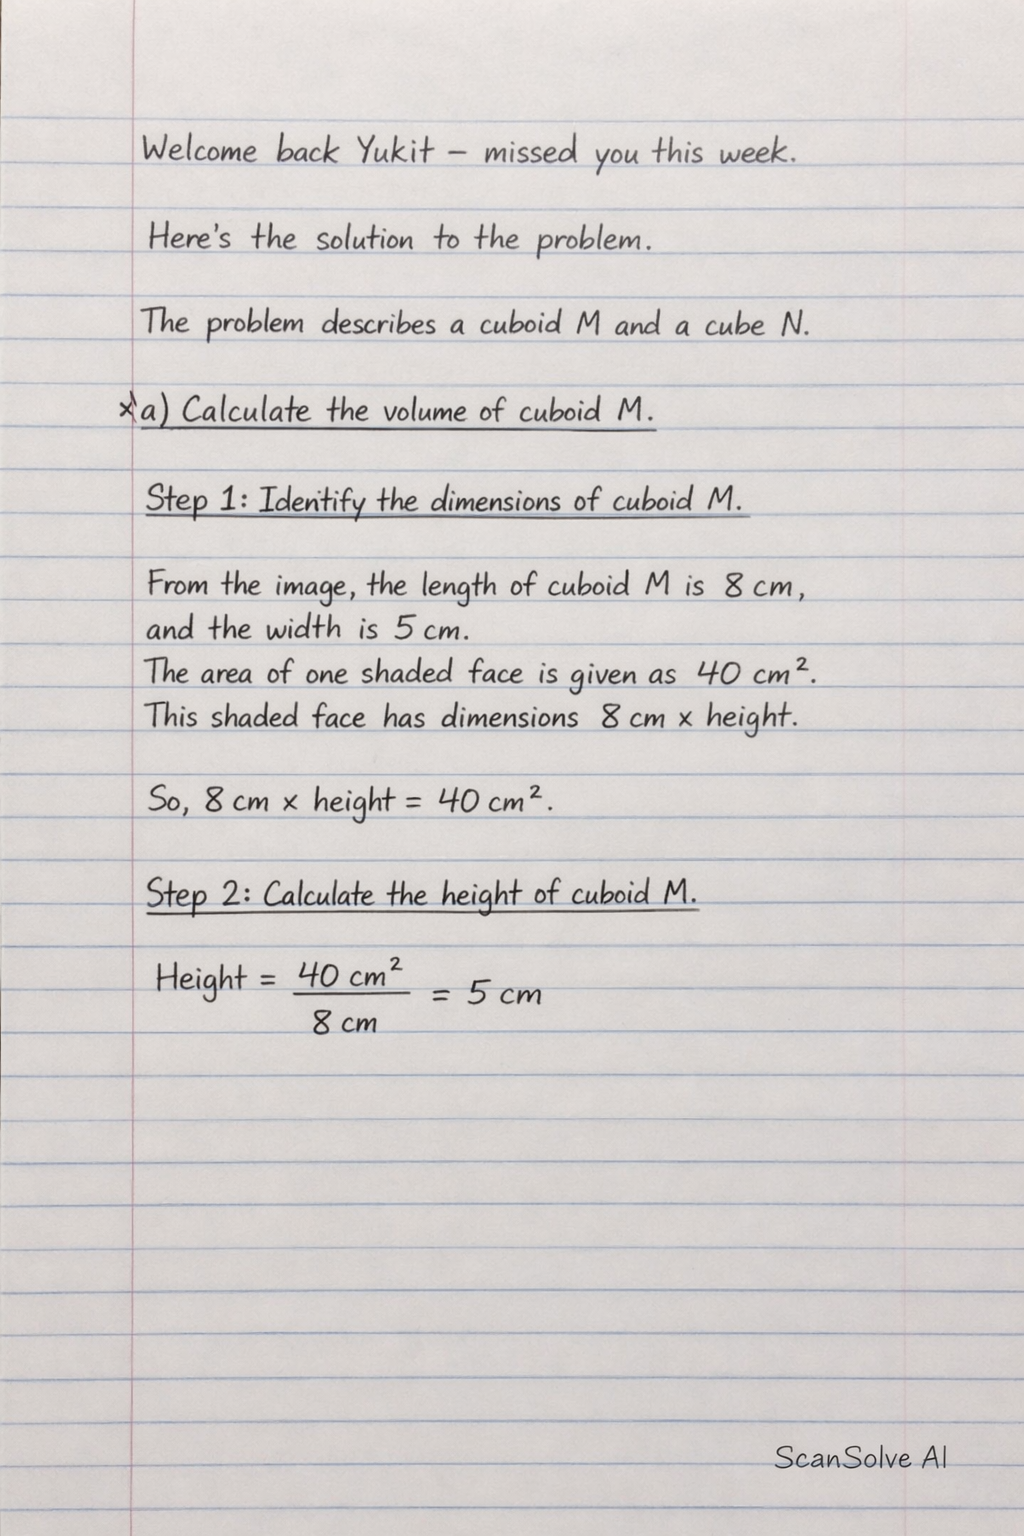 Welcome back Yukit – missed you this week.
Here's the solution to the problem.
The problem describes a cuboid M and a cube N.
a) Calculate the volume of cuboid M.
Step 1: Identify the dimensions of cuboid M.
From the image, the length of cuboid M is 8 cm,
and the width is 5 cm.
The area of one shaded face is given as 40 cm².
This shaded face has dimensions 8 cm x height.
So, 8 cm x height = 40 cm².
Step 2: Calculate the height of cuboid M.
Height = 40 cm² / 8 cm = 5 cm
ScanSolve AI